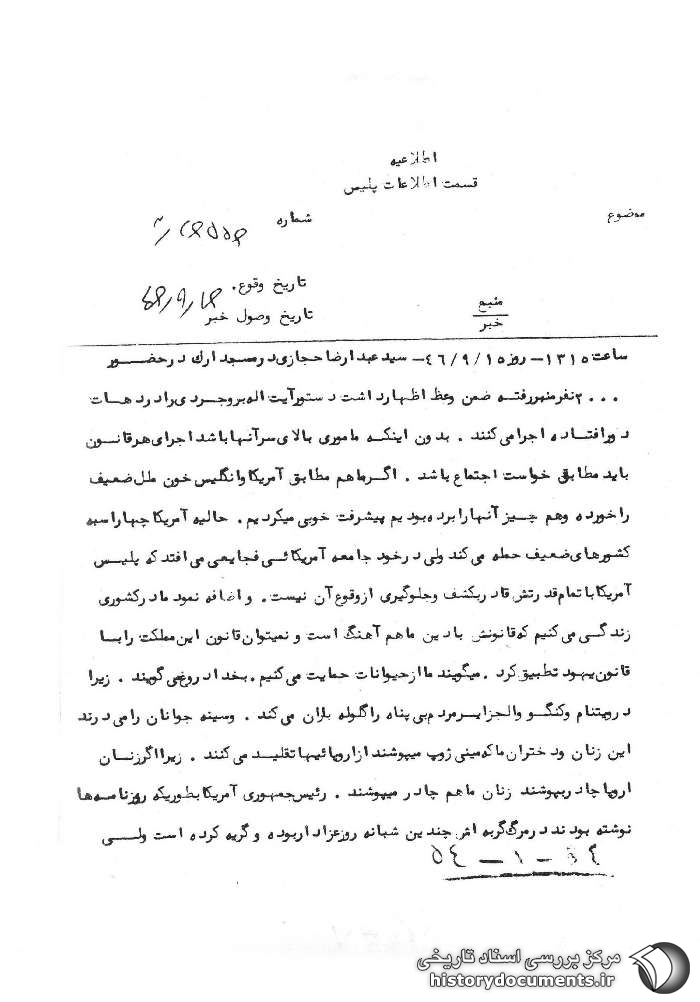 اطلاعیه
قسمت اطلاعات پلیس
موضوع
شماره
تاریخ وقوع.
منبع
خبر
تاریخ وصول خبر
۴۶/۹/۱۶
ساعت ۱۳۱۵- روز ۴۶/۹/۱۵- سید عبدارضا حجازی در مسجد ارك در حضور
۲۰۰۰ نفر منبر رفته ضمن وعظ اظهار داشت دستور آیت اله بروجردی را در دهات
دور افتاده اجرا می کنند . بدون اینکه ماموری بالای سر آنها باشد اجرای هر قانون
باید مطابق خواست اجتماع باشد . اگر ماهم مطابق آمریکا وانگلیس خون ملل ضعیف
را خورده وهم چیز آنها را برده بودیم پیشرفت خوبی میکردیم . حالیه آمریکا چهار اسبه
کشورهای ضعیف حمله می کند ولی در خود جامعه آمریکائی فجایعی می افتد که پلیس
آمریکا با تمام قدرتش قادر بکشف وجلوگیری از وقوع آن نیست . و اضافه نمود ما در کشوری
زندگی می کنیم که قانونش با دین ماهم آهنگ است و نمیتوان قانون این مملکت را با
قانون یهود تطبیق کرد . میگویند ما از حیوانات حمایت می کنیم . بخدا دروغ می گویند . زیرا
در ویتنام وکنگو والجزایر مردم بی پناه را گلوله باران می کند . وسینه جوانان را می درند
این زنان ودختران ما که مینی ژوپ میپوشند از اروپائیها تقلید می کنند . زیرا اگر زنان
اروپا چادر بپوشند زنان ماهم چادر میپوشند . رئیس جمهوری آمریکا بطوریکه روزنامه ها
نوشته بودند در مرگ گربه اش چندین شبانه روز عزادار بوده و گریه کرده است ولی
مرکز بررسی اسناد تاریخی
historydocuments.ir